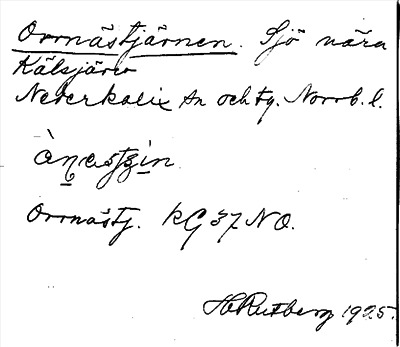 Orrnästjärnen. Sjö nära
Kälsjärv
Nederkalix sn och tg. Norrb. l.
Orrnästj. KG 37 NO.
H Rutberg 1925.